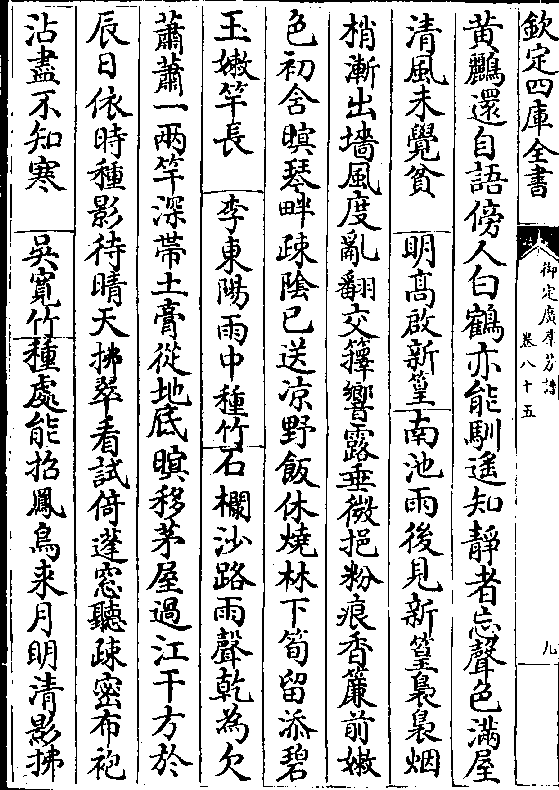 欽定四庫全書
御定廣羣芳譜
卷八十五
九
黄鸝還自語傍人白鶴亦能馴遥知靜者忘聲色滿屋
清風未覺貧　明髙啟新篁南池雨後見新篁裊裊烟
梢漸出墻風度亂翻交籜響露垂微挹粉痕香簾前嫩
色初含暝琴畔疎陰已送凉野飯休燒林下筍留添碧
玉嫩竿長　李東陽雨中種竹石欄沙路雨聲乾為欠
蕭蕭一兩竿深帶土膏從地底暝移茅屋過江干方於
辰日依時種影待晴天拂翠看試倚蓬窓聽疎密布袍
沾盡不知寒　吳寛竹種處能招鳳鳥来月明清影拂